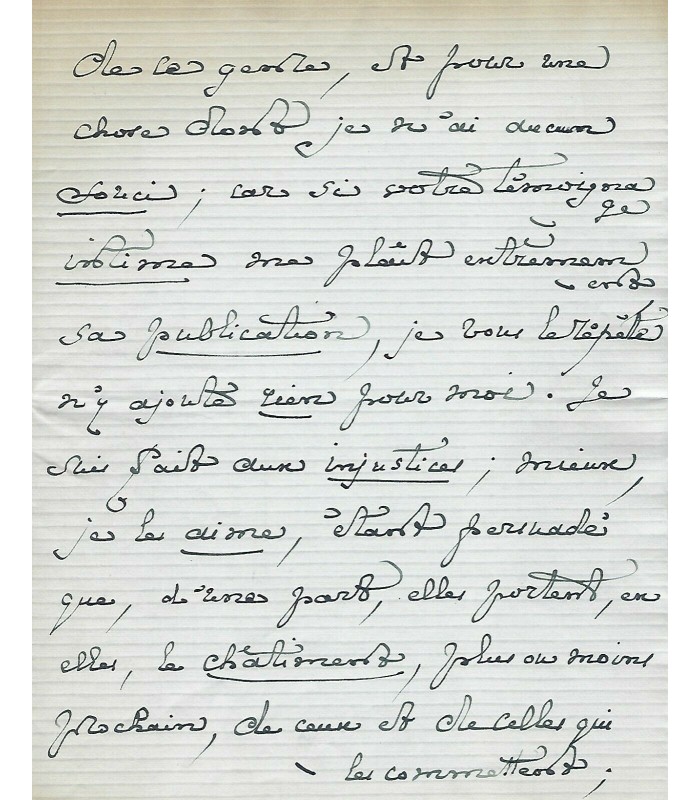 de ce genre, et pour une
chose dont je n'ai aucun
souci ; car si votre témoigna
ge
intime me plaît entièrem
ent
sa publication, je vous le répète
n'y ajoute rien pour moi. Je
suis fait aux injustices ; mieux,
je les aime, étant persuadé
que, d'une part, elles portent, en
elles, le châtiment, plus ou moins
prochain, de ceux et de celles qui
les commettent ;